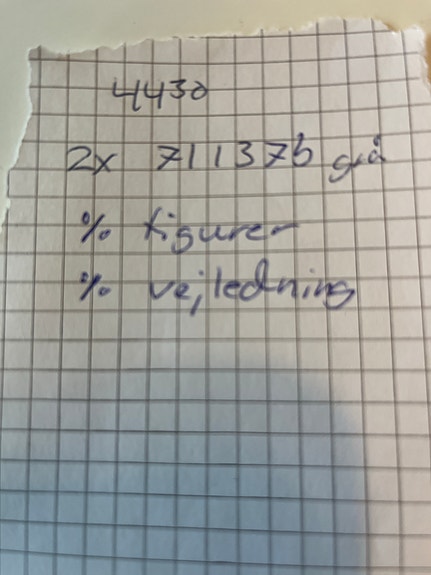 4430
2x 71137b grå
% figurer
% vejledning